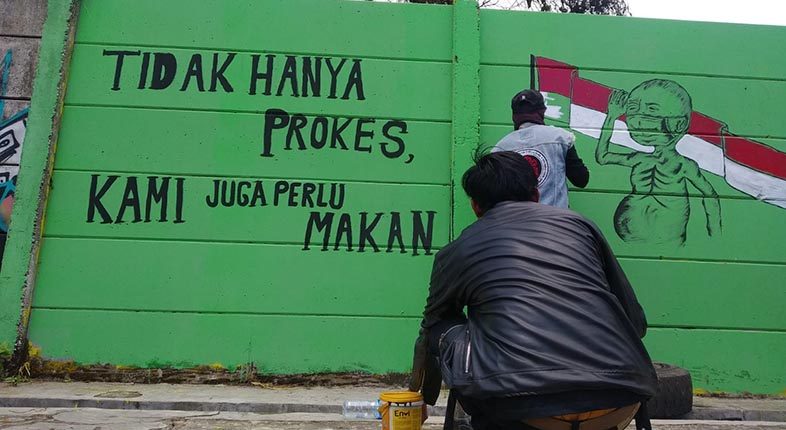 TIDAK HANYA
PROKES,
KAMI JUGA PERLU
MAKAN
Envi